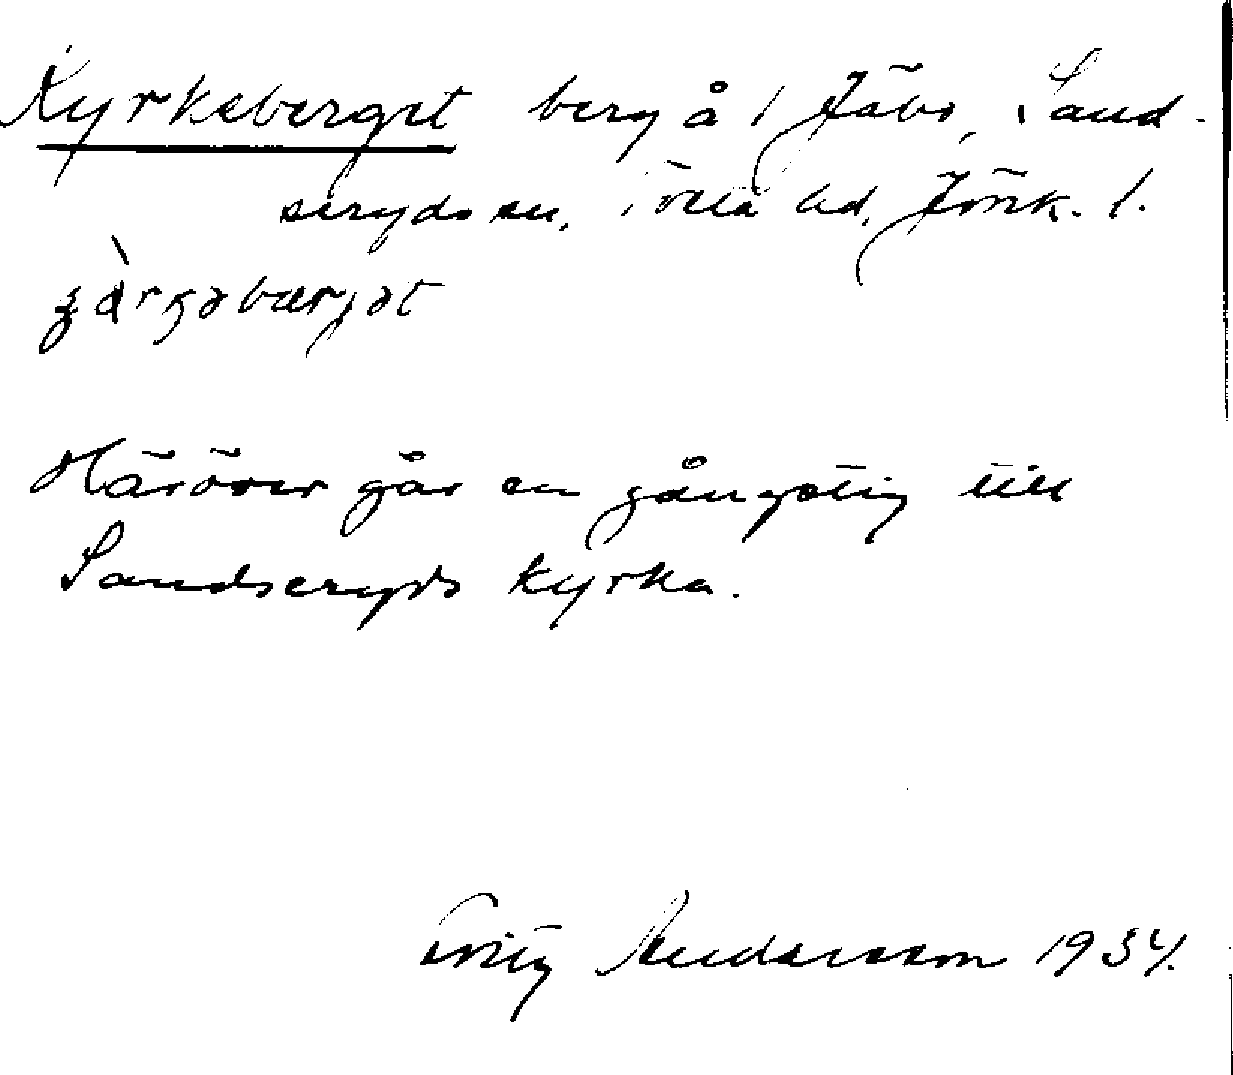 Kyrkeberget berg å 1 Jäbo, Sand-
seryds sn, Tveta hd, Jönk. l.
Häröver går en gångstig till
Sandseryds kyrka.
Fritz Andersson 1934.